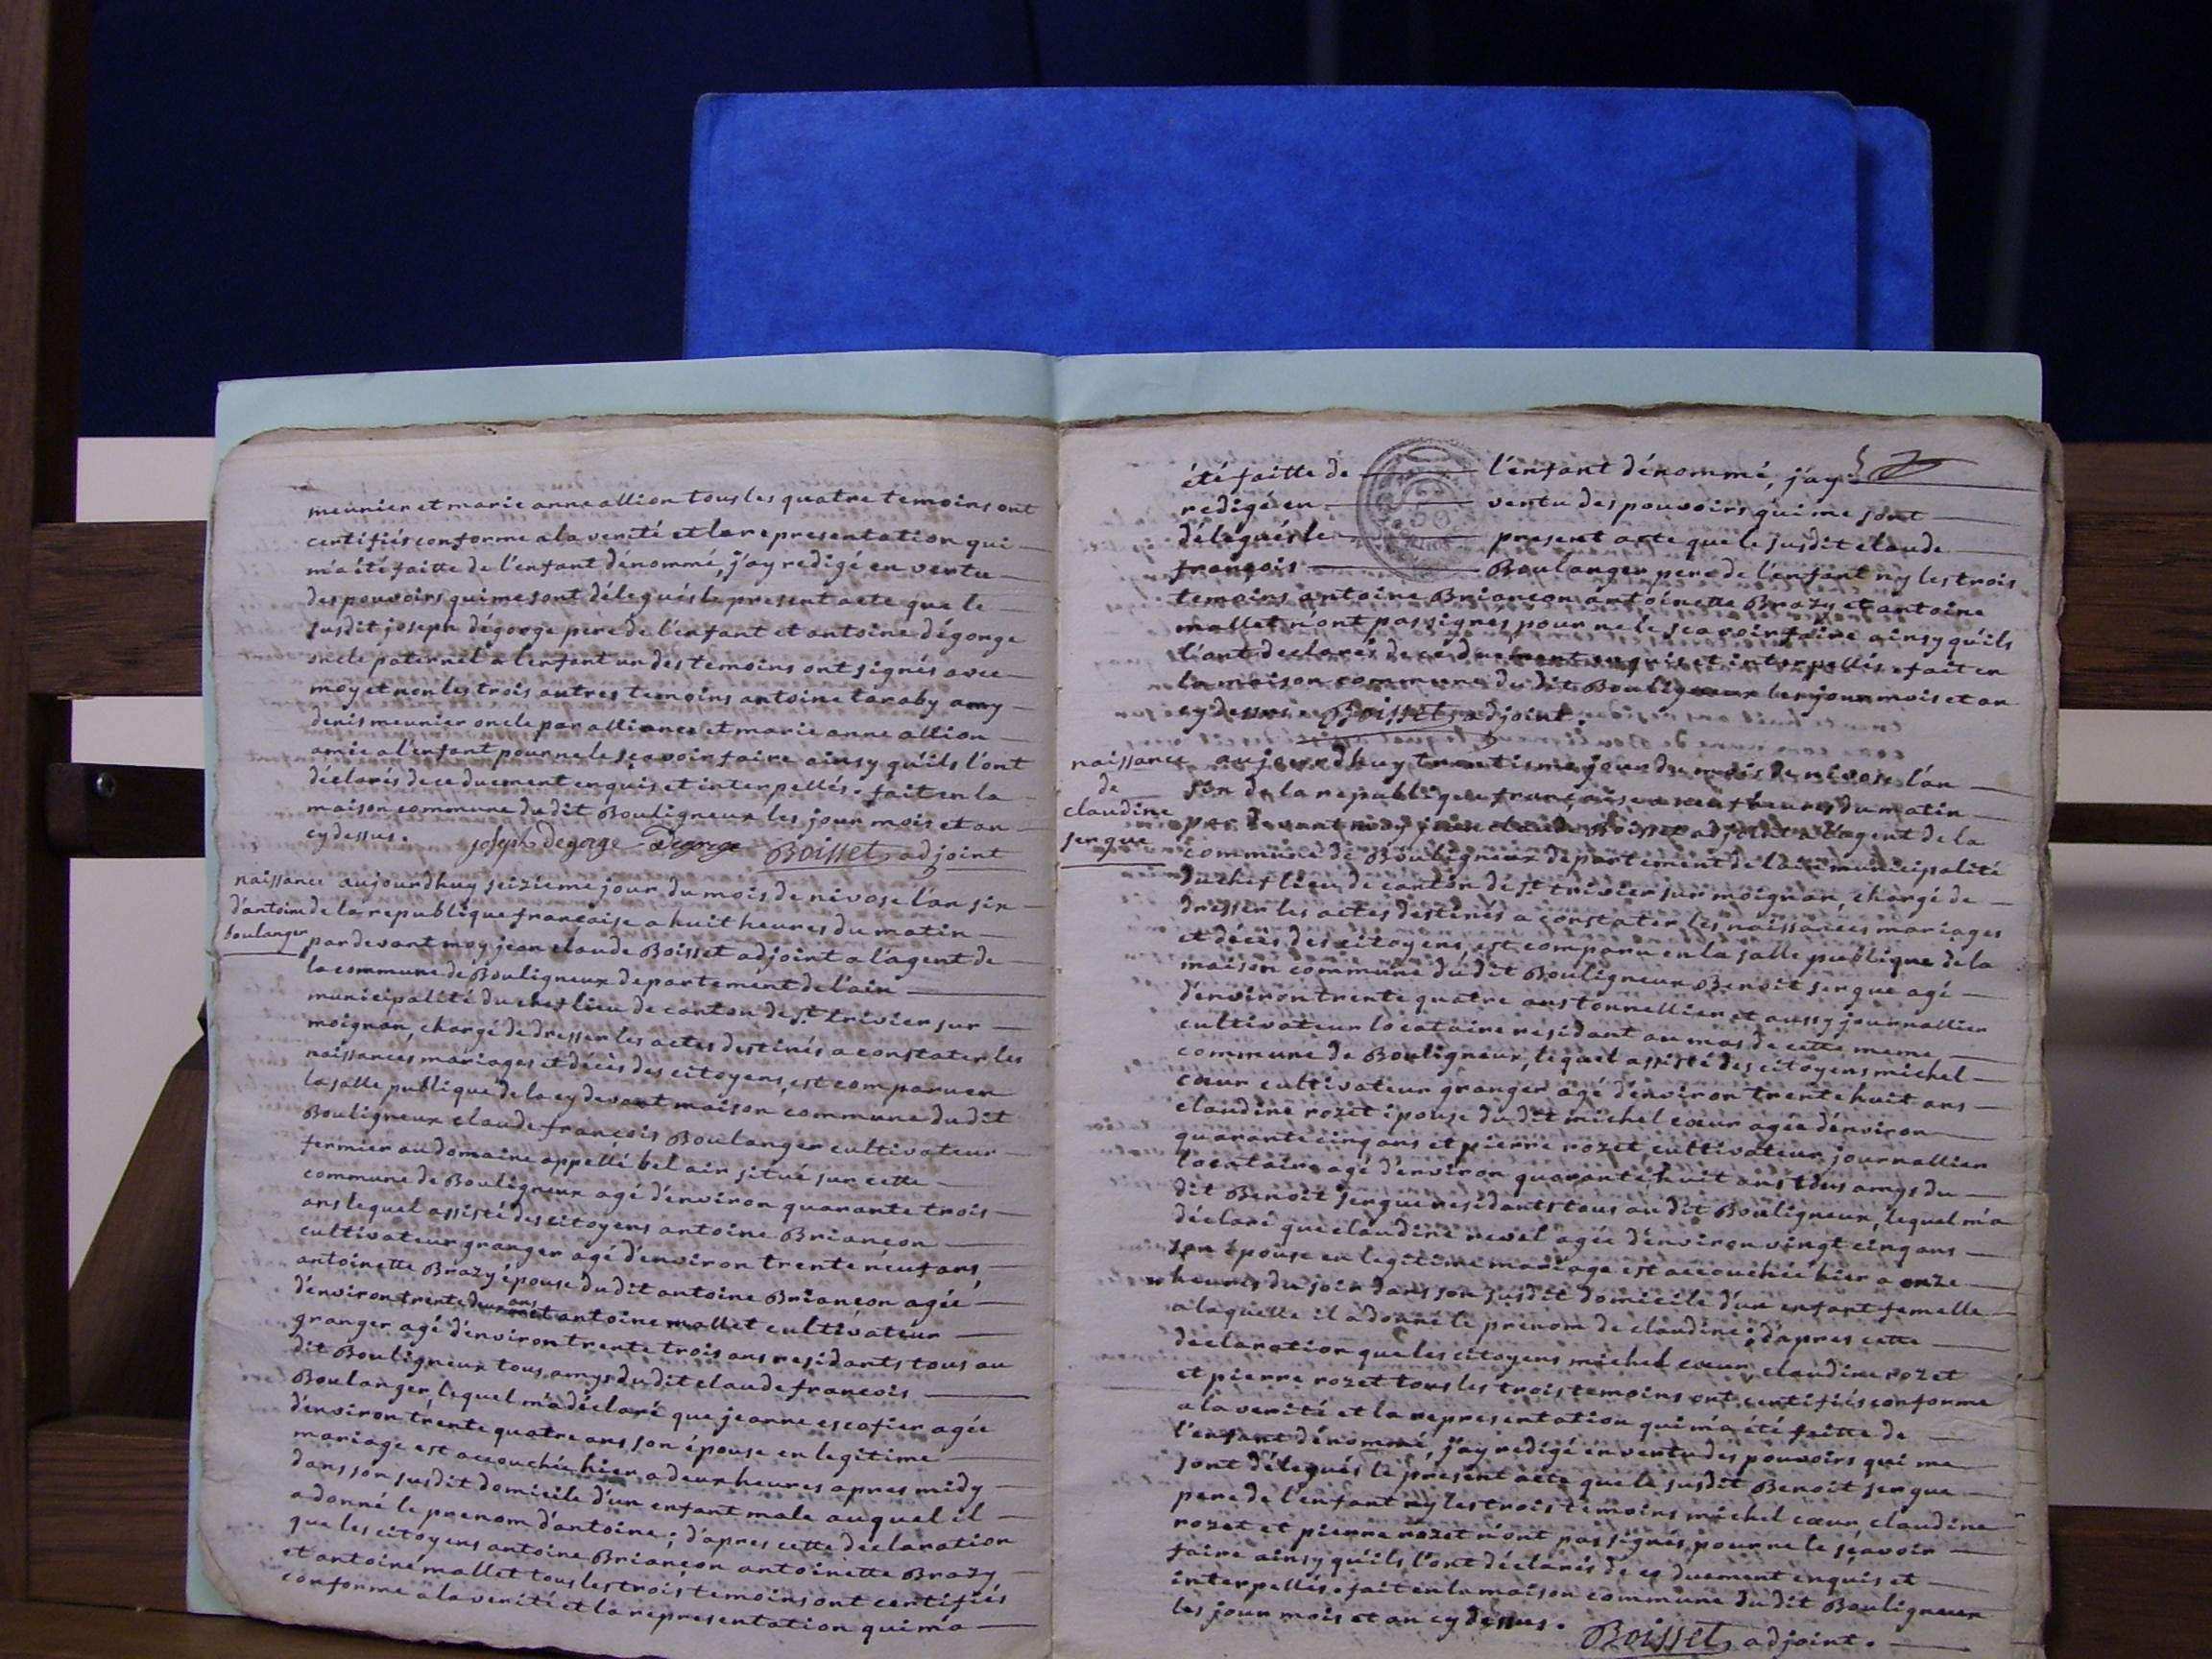 meunier et marie anne allion tous les quatre temoins ont
certifiés conforme a la verité et la representation qui
m'a été faitte de l'enfant dénommé, j'ay redigé en vertu
des pouvoirs qui me sont délegués le present acte que le
susdit joseph dégorge pere de l'enfant et antoine dégorge
oncle paternel a l'enfant un des temoins ont signés avec
moy et non les trois autres temoins antoine taraby amy
denis meunier oncle par alliance et marie anne allion
amie a l'enfant pour ne le scavoir faire ainsy qu'ils l'ont
déclarés de ce duement enquis et interpellés. fait en la
maison commune du dit Bouligneux les jour mois et an
cy dessus. joseph Degorge Degorge Boisset adjoint
naissance
d'antoine
boulanger
aujourdhuy seizieme jour du mois de nivose l'an six
de la republique francaise a huit heures du matin
par devant moy jean claude Boisset adjoint a l'agent de
la commune de Bouligneux departement de l'ain
municipalité du chef lieu de canton de St trivier sur
moignan, chargé de dresser les actes destinés a constater les
naissances mariages et décès des citoyens, est comparu en
la salle publique de la cy devant maison commune du dit
Bouligneux claude francois Boulanger cultivateur
fermier au domaine appellé bel air situé sur cette
commune de Bouligneux agé d'environ quarante trois
ans lequel assisté des citoyens antoine Briancon
cultivateur granger agé d'environ trente neuf ans,
antoinette Brazy épouse du dit antoine Briancon agée
d'environ trente deux ans et antoine mallet cultivateur
granger agé d'environ trente trois ans residants tous au
dit Bouligneux tous amys du dit claude francois
Boulanger, lequel m'a déclaré que jeanne escofier agée
d'environ trente quatre ans son épouse en legitime
mariage est accouchée hier a deux heures apres midy
dans son susdit domicile d'un enfant male auquel il
a donné le prenom d'antoine; d'apres cette declaration
que les citoyens antoine Briancon antoinette Brazy
et antoine mallet tous les trois temoins ont certifiés
conforme a la verité et la representation qui m'a
été faitte de l'enfant dénommé, j'ay
redigé en vertu des pouvoirs qui me sont
délegués le present acte que le susdit claude
françois Boulanger pere de l'enfant ny les trois
temoins antoine Briancon antoinette Brazy et antoine
mallet n'ont pas signés pour ne le scavoir faire ainsy qu'ils
l'ont declarés de ce duement enquis et interpellés. fait en
la maison commune du dit Bouligneux les jour mois et an
cy dessus. Boisset adjoint.
naissance
de
claudine
sergue
aujourdhuy trentieme jour du mois de nivose l'an
six de la republique française a neuf heures du matin
par devant moy jean claude Boisset adjoint a l'agent de la
commune de Bouligneux departement de l'ain municipalité
du chef lieu de canton de St trivier sur moignan, chargé de
dresser les actes destinés a constater les naissances mariages
et décès des citoyens, est comparu en la salle publique de la
maison commune du dit Bouligneux Benoit sergue agé
d'environ trente quatre ans tonnellier et aussy journallier
cultivateur locataire residant au mas de cette meme
commune de Bouligneux, lequel assisté des citoyens michel
cœur cultivateur granger agé d'environ trente huit ans
claudine rozet épouse du dit michel cœur agée d'environ
quarante cinq ans et pierre rozet cultivateur journallier
locataire agé d'environ quarante huit ans tous amys du
dit Benoit sergue residants tous au dit Bouligneux, lequel m'a
déclaré que claudine revel agée d'environ vingt cinq ans
son épouse en legitime mariage est accouchée hier a onze
heures du soir dans son susdit domicile d'un enfant femelle
a laquelle il a donné le prenom de claudine; d'apres cette
declaration que les citoyens michel cœur, claudine rozet
et pierre rozet tous les trois temoins ont certifiés conforme
a la verité et la representation qui m'a été faitte de
l'enfant dénommé, j'ay redigé en vertu des pouvoirs qui me
sont délegués le present acte que le susdit Benoit sergue
pere de l'enfant ny les trois temoins michel cœur, claudine
rozet et pierre rozet n'ont pas signés pour ne le scavoir
faire ainsy qu'ils l'ont déclarés de ce duement enquis et
interpellés. fait en la maison commune du dit Bouligneux
les jour mois et an cy dessus.
Boisset adjoint.